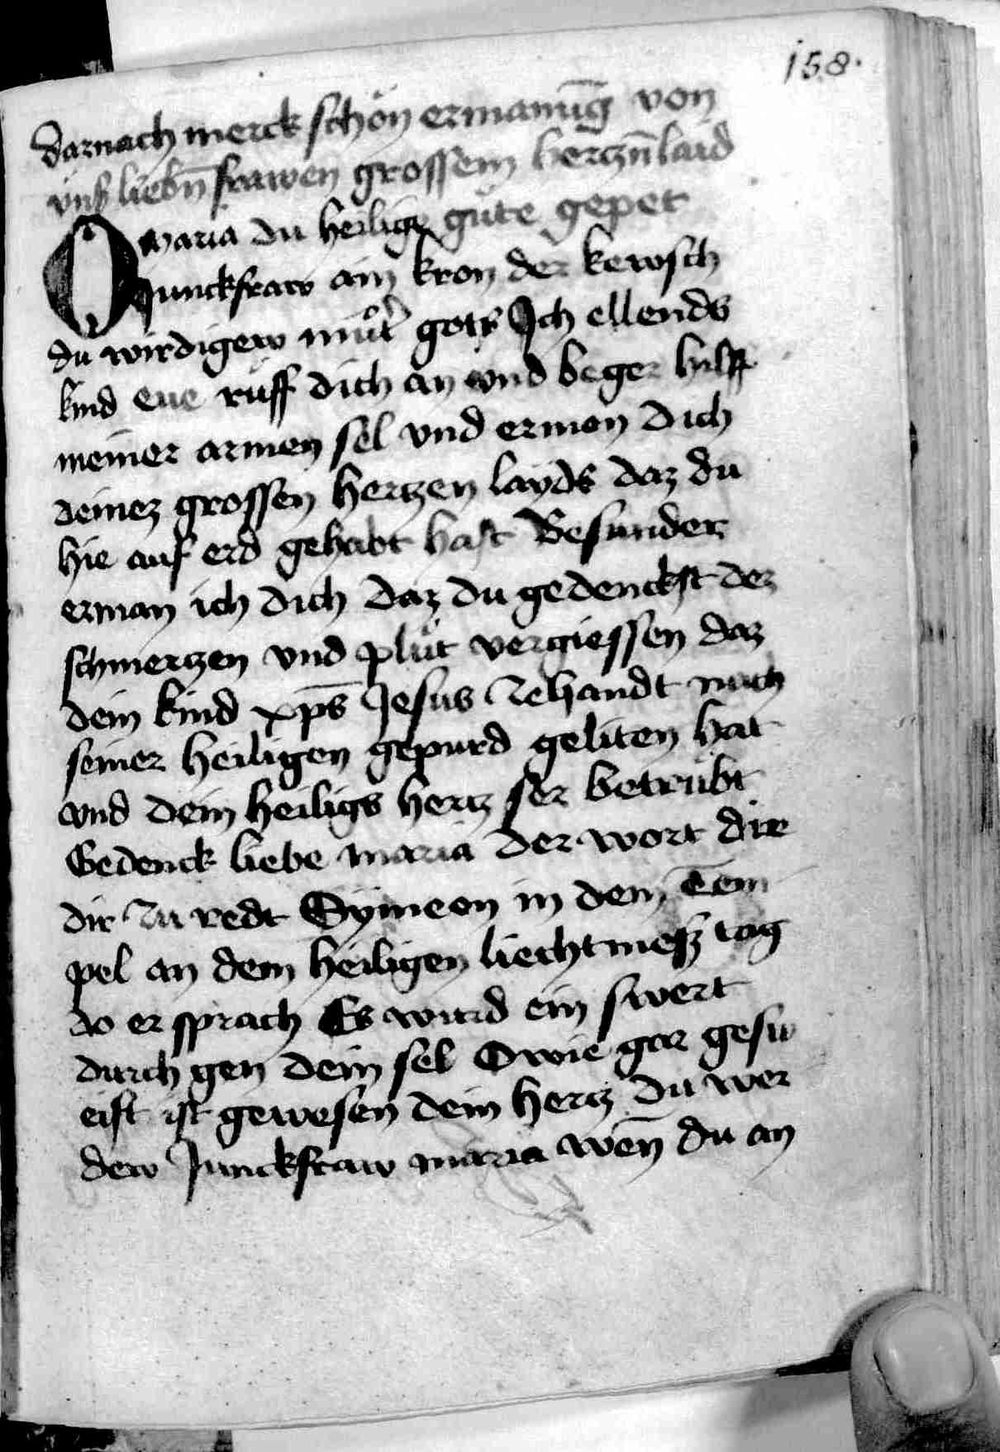 158.
darnach merck schön ermanūg von
vnß liebn̄ frawen grossem hertzn̄laid
O maria du heilige gůte gepet
Junckfraw ain kron der kewsch
du wirdigew můter gots Ich ellends
kind eue rüff dich an vnd beger hilff
meiner armen sel vnd ermon dich
deinez grossen hertzen layds daz du
hie auf erd gehabt hast Besunder
erman ich dich daz du gedenckst dez
schmertzen vnd plůt vergiessen daz
dein kind xp̄s Jesus zehandt nach
seiner heiligen gepurd geliten hat
vnd dein heiligs hertz ser betrübt
Gedenck liebe maria der wort die
dir zu redt Symeon in dem Tem
pel an dem heiligen liechtmesz tag
do er sprach Es wurd ein swert
durch gen dein sel O wie gar gesu
eist ist gewesen dein hertz du wer
dew Junckfraw maria wen̄ du an